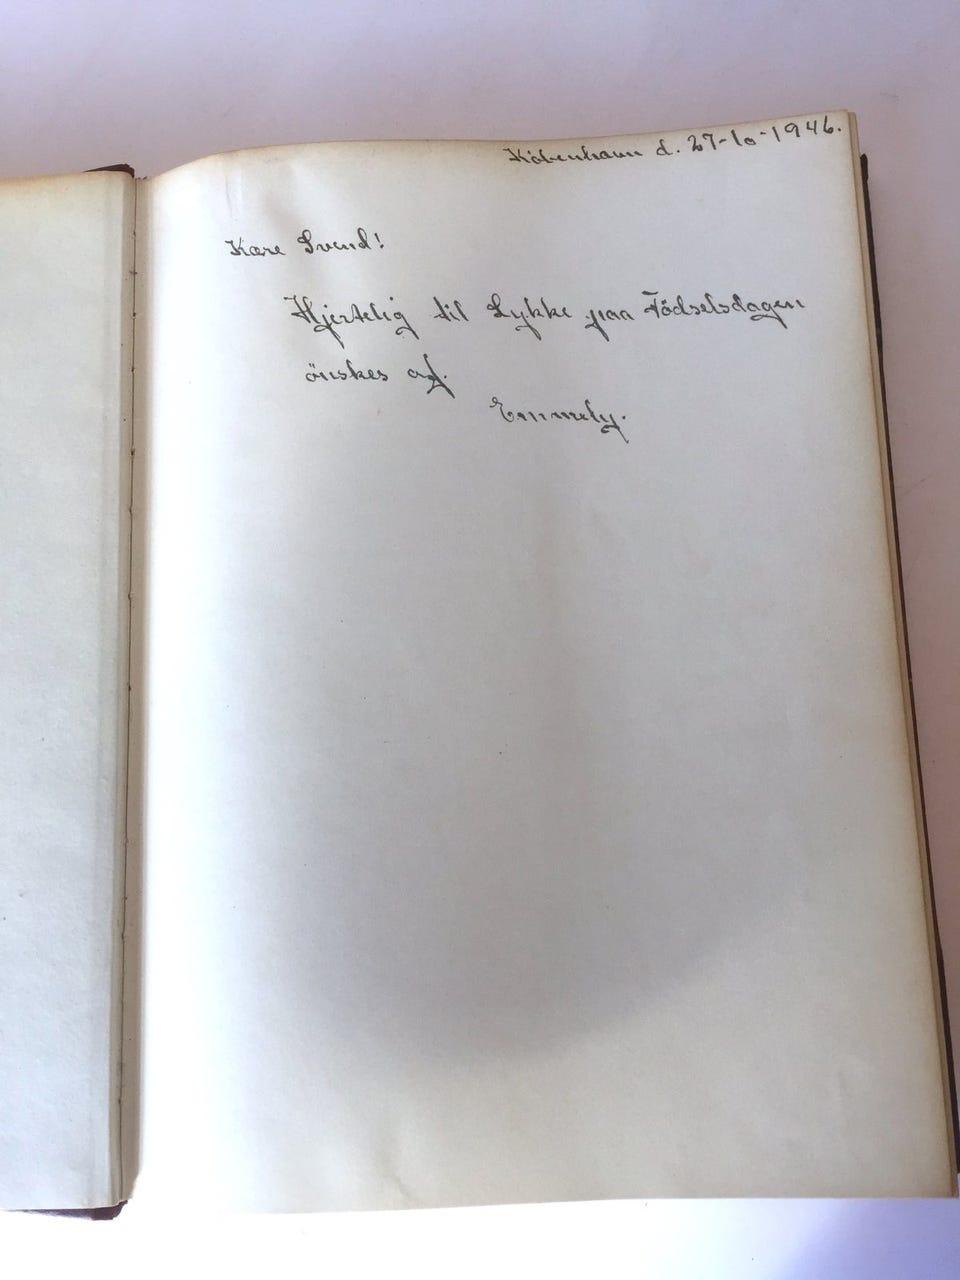 Köbenhavn d. 27-10-1946.
Kære Svend!
Hjertelig til Lykke paa Födselsdagen
önskes af.
Emmely.